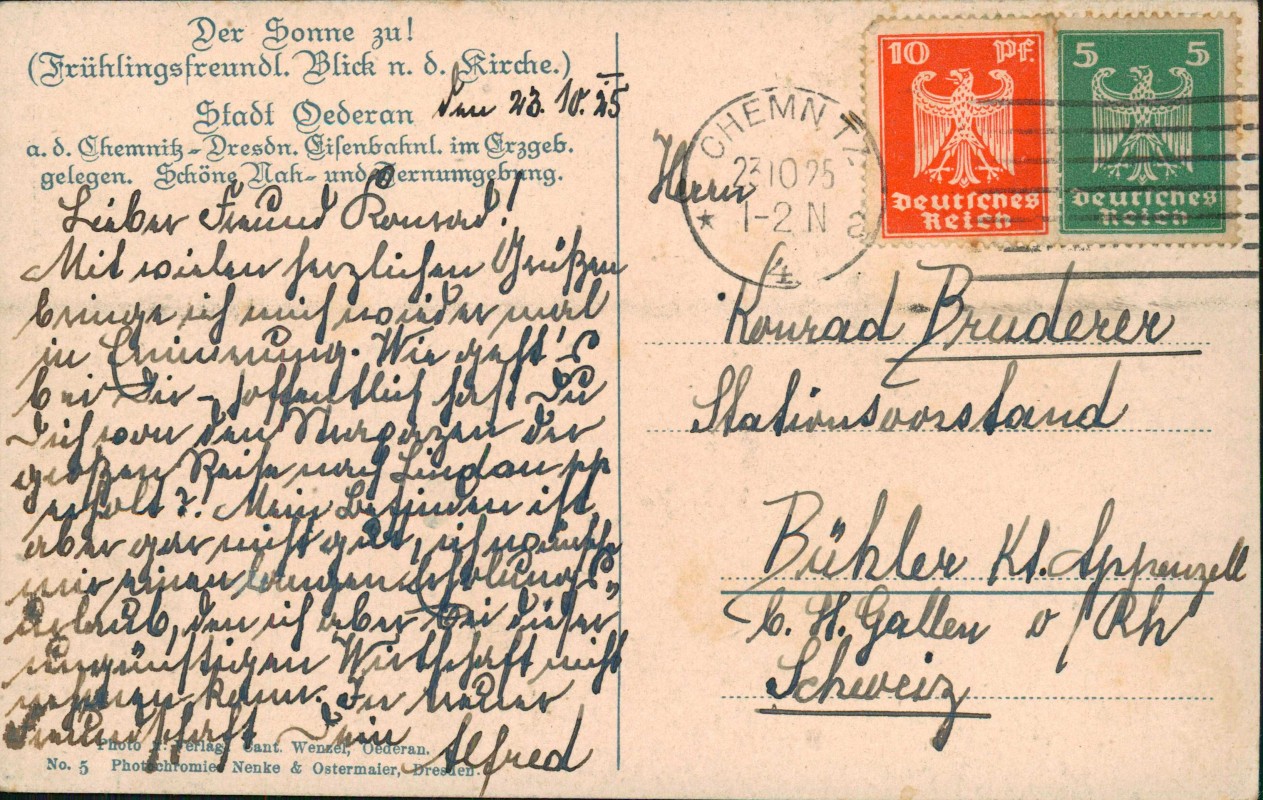 Der Sonne zu!
(Frühlingsfreundl. Blick n. d. Kirche.)
Stadt Oederan
a. d. Chemnitz-Dresdn. Eisenbahnl. im Erzgeb.
gelegen. Schöne Nah- und Fernumgebung.
den 23. 10. 25
Lieber Freund Konrad!
Mit vielen herzlichen Grüßen
bringe ich mich wieder mal
in Erinnerung. Wie geht's
bei Dir – hoffentlich hast Du
Dich von den Strapazen der
großen Reise nach Lindau pp
erholt? Mein Befinden ist
aber gar nicht gut, ich wünsche
mir einen langen Erholungs-
urlaub, den ich aber bei dieser
ungünstigen Wirtschaft nicht
nehmen kann. In treuer
Freundschaft Dein
Alfred
Photo u. Verlag: Cant. Wenzel, Oederan.
No. 5 Photochromie Nenke & Ostermaier, Dresden.
CHEMNITZ
23.10.25
1-2 N
* a
4
10 Pf.
Deutsches
Reich
5 5
Deutsches
Reich
Herrn
Konrad Bruderer
Stationsvorstand
Bühler Kt. Appenzell
b. St. Gallen a/Rh
Schweiz